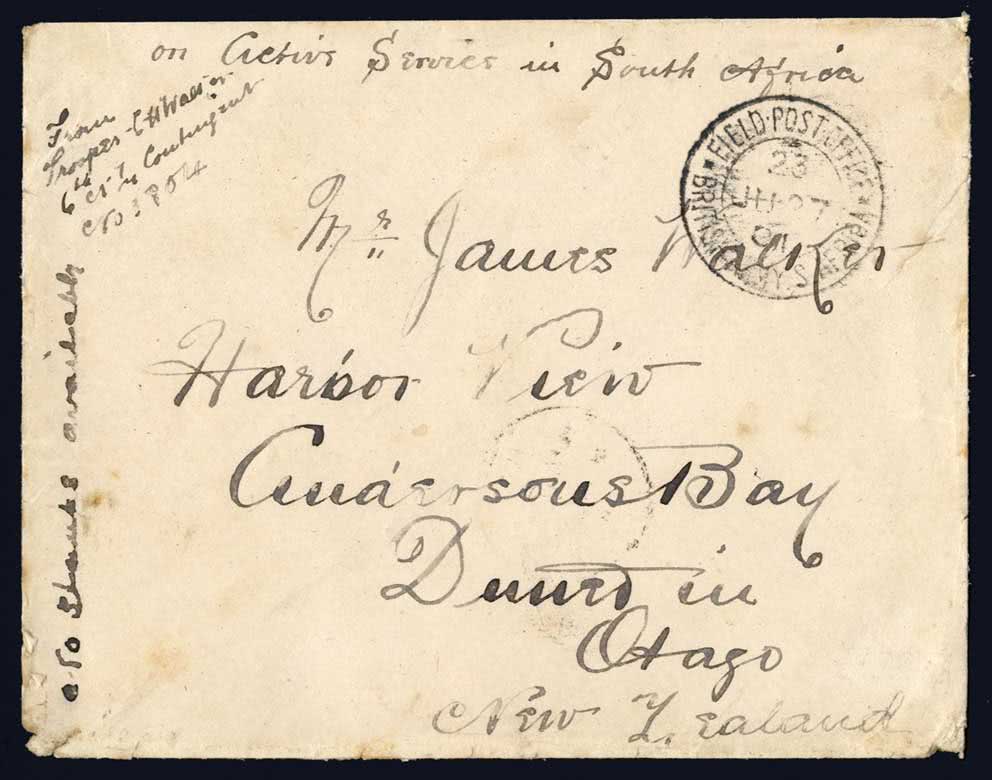 on Active Service in South Africa
From
Trooper C H Walker
6th N Z Contingent
No 3804
Mr. James Walker
Harbor View
Andersons Bay
Dunedin
Otago
New Zealand
No Stamps available
FIELD·POST·OFFICE
BRITISH ARMY S. AFRICA
23
JU 27
01